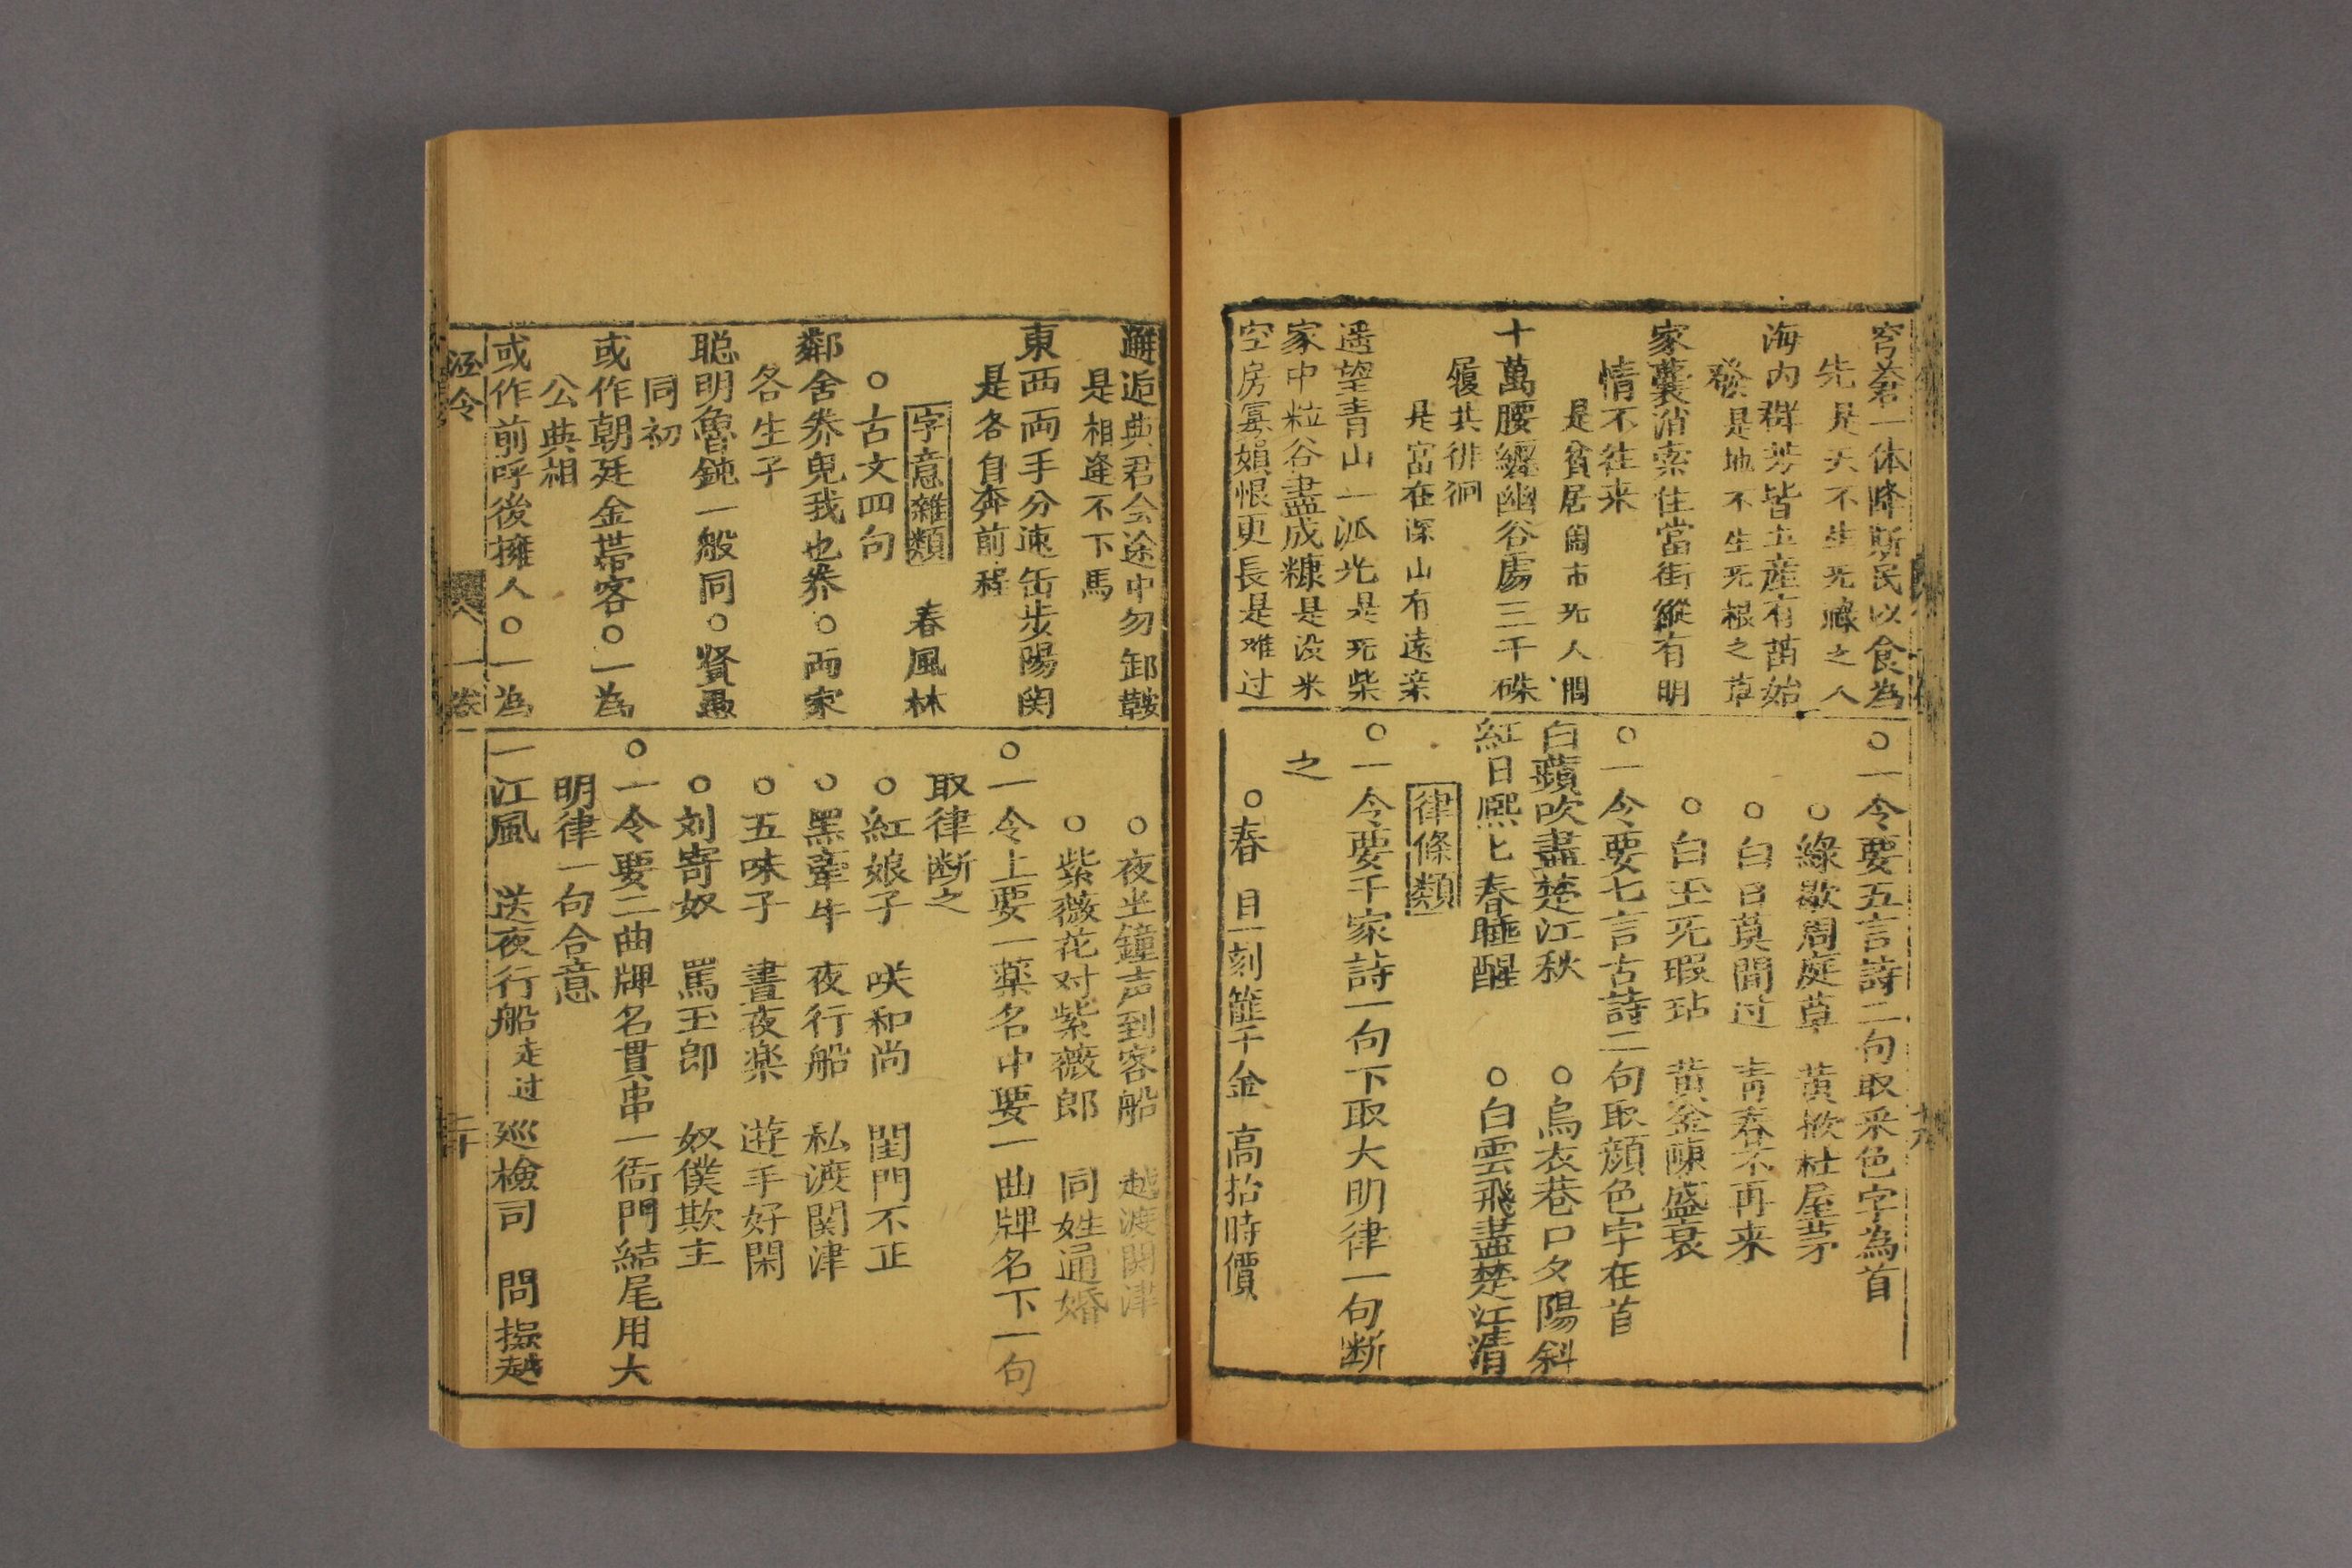 穹蒼一体降斯民以食為
先 是天不生无祿之人
海内群芳皆土産有苗始
發 是地不生无根之草
家囊消索住當街縱有明
情不往来 是貧居閙市无人問
十萬腰纏幽谷處三千硃
履共徘徊 是富在深山有遠亲
遥望青山一派光是无柴
家中粒谷盡成糠是没米
空房寡媍恨更長是难过
〇一令要五言詩二句取采色字為首
〇緑歇周庭草 黃掀杜屋茅
〇白日莫閒过 青春不再来
〇白玉无瑕玷 黃金陳盛衰
〇一令要七言古詩二句取顔色字在首
〇烏衣巷口夕陽斜
白蘋吹盡楚江秋
〇白雲飛盡楚江清
紅日熙匕春睡醒
律條類
〇一令要千家詩一句下取大明律一句断
之
〇春目一刻籠千金 高抬時價
邂逅與君会途中勿卸鞍
是相逢不下馬
東西两手分速缶步陽関
是各自奔前程
字意雜類 春風林
〇古文四句
鄰舍养児我也养〇两家
各生子
聪明魯鈍一般同〇賢愚
同初
或作朝廷金带客〇一為
公與相
或作前呼後擁人〇一為
〇夜坐鐘声到客船 越渡関津
〇紫薇花对紫薇郎 同姓通婚
〇一令上要一薬名中要一曲牌名下一句
取律断之
〇紅娘子 咲和尚 閨門不正
〇黑牽牛 夜行船 私渡関津
〇五味子 晝夜楽 遊手好閑
〇刘寄奴 罵玉郎 奴僕欺主
〇一令要二曲牌名貫串一衙門結尾用大
明律一句合意
一江風 送夜行船走过 巡檢司 問擬越
酒令 八 一卷 二十